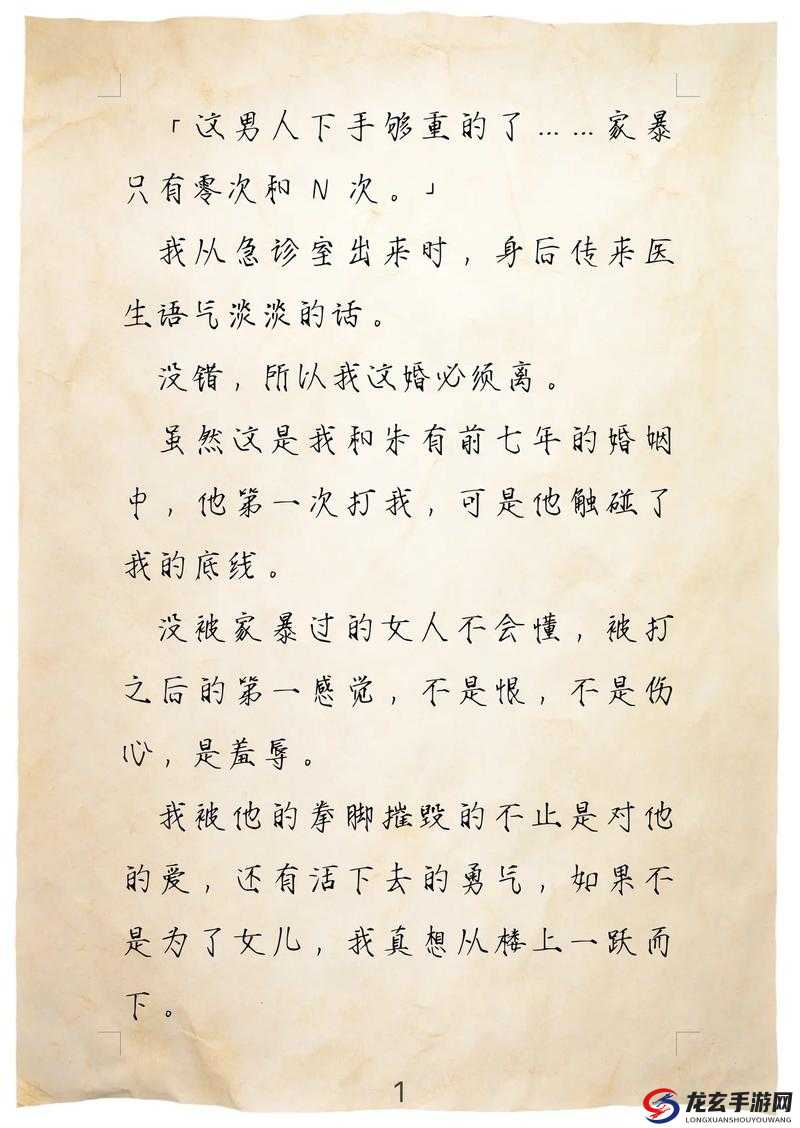 「这男人下手够重的了……家暴
只有零次和 N 次。」
我从急诊室出来时，身后传来医
生语气淡淡的话。
没错，所以我这婚必须离。
虽然这是我和朱有前七年的婚姻
中，他第一次打我，可是他触碰了
我的底线。
没被家暴过的女人不会懂，被打
之后的第一感觉，不是恨，不是伤
心，是羞辱。
我被他的拳脚摧毁的不止是对他
的爱，还有活下去的勇气，如果不
是为了女儿，我真想从楼上一跃而
下。
1
龙玄手游网
LONGXUANSHOUYOUWANG